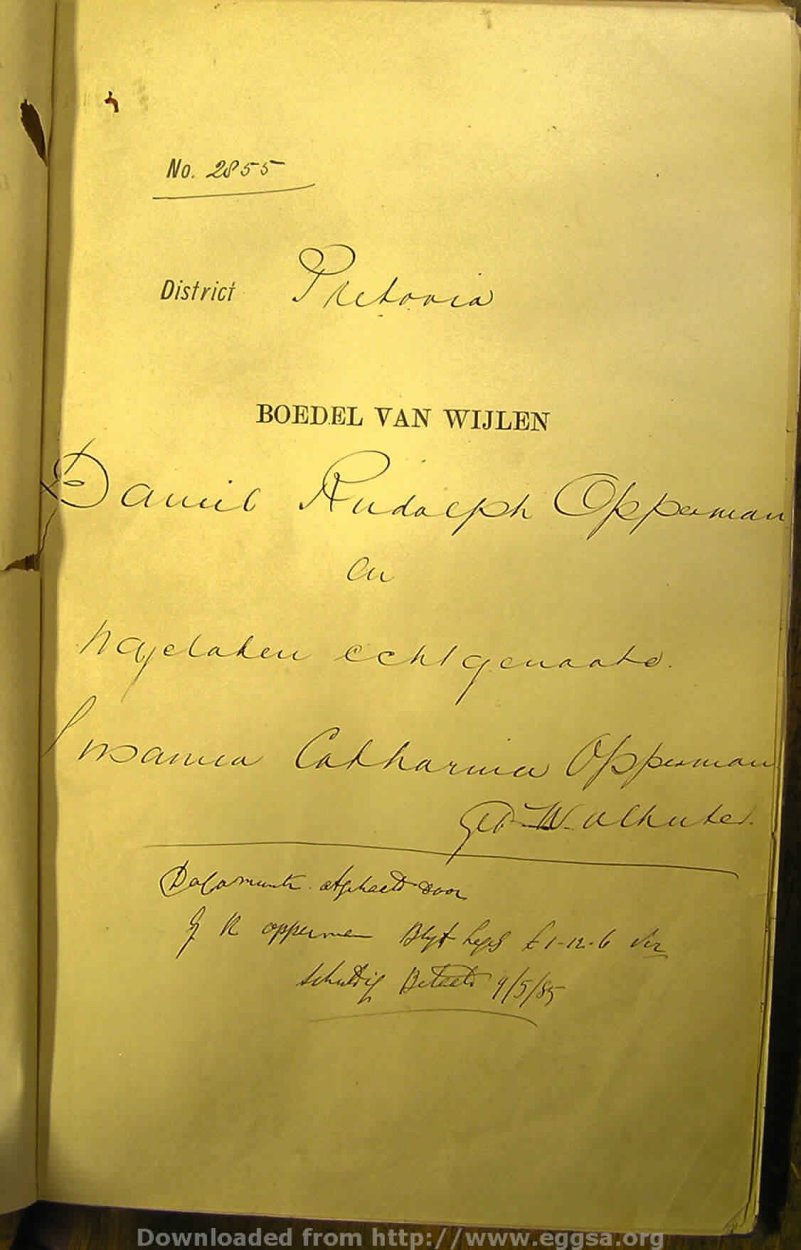 No. 2855
District Pretoria
BOEDEL VAN WIJLEN
Daniel Rudolph Opperman
en
nagelaten echtgenoote
Susanna Catharina Opperman
geb Wolhuter
Documenten afgehaald door
J R Opperman Blyft £1-12-6
schuldig Betaald 9/5/85
Downloaded from http://www.eggsa.org